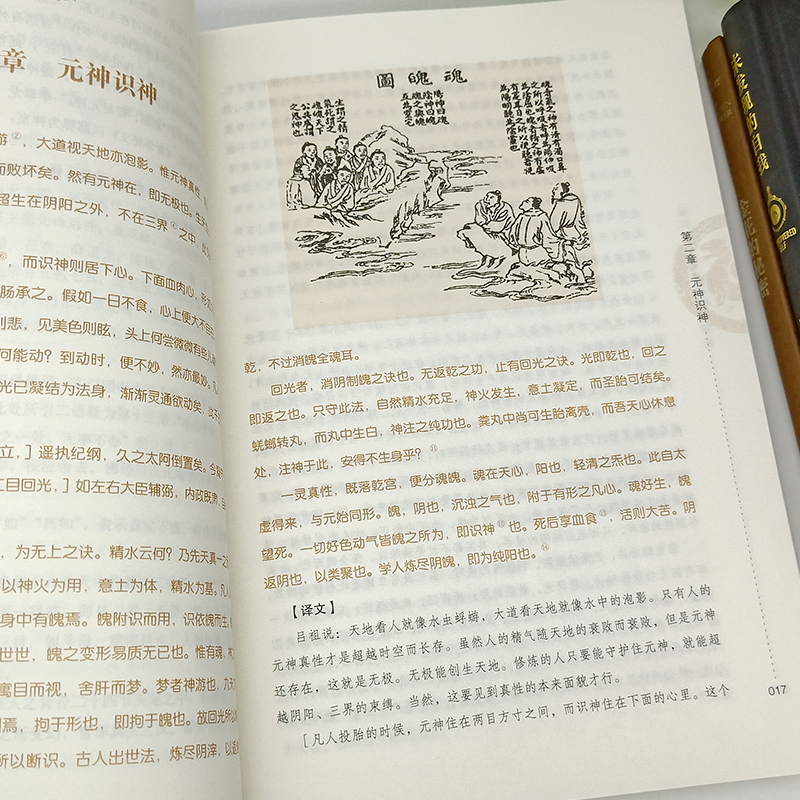 章 元神识神
游②，大道视天地亦泡影。惟元神真性，
而败坏矣。然有元神在，即无极也。生天
超生在阴阳之外，不在三界④之中，此
，而识神则居下心。下面血肉心，形
肠承之。假如一日不食，心上便大不自
则悲，见美色则眩，头上何尝微微有些儿
何能动？到动时，便不妙，然亦最妙。凡
光已凝结为法身，渐渐灵通欲动矣，
立，］遥执纪纲，久之太阿倒置矣。今
二目回光，］如左右大臣辅弼，内政既肃，
，为无上之诀。精水云何？乃先天真一之
以神火为用，意土为体，精水为基。凡
身中有魄焉。魄附识而用，识依魄而生。
世世，魄之变形易质无已也。惟有魂，
寓目而视，舍肝而梦。梦者神游也，九天
焉，拘于形也，即拘于魄也。故回光所以
所以断识。古人出世法，炼尽阴滓，以返
魂魄圖
魂者氣之神有清有濁口鼻
之所以呼吸者呼為陽伸吸
為陰屈也魄者精之神有虛
有實耳目之所以視聽者視
為陽明聽為陰靈也
陽神曰魂
陰神曰魄
魂之與魄
互為室宅
生謂之精
氣死謂之
魂魄天下
公共謂之
鬼神也
乾，不过消魄全魂耳。
回光者，消阴制魄之诀也。无返乾之功，止有回光之诀。光即乾也，回之
即返之也。只守此法，自然精水充足，神火发生，意土凝定，而圣胎可结矣。
蜣螂转丸，而丸中生白，神注之纯功也。粪丸中尚可生胎离壳，而吾天心休息
处，注神于此，安得不生身乎？⑪
一灵真性，既落乾宫，便分魂魄。魂在天心，阳也，轻清之炁也。此自太
虚得来，与元始同形。魄，阴也，沉浊之气也，附于有形之凡心。魂好生，魄
望死。一切好色动气皆魄之所为，即识神⑫也。死后享血食⑬，活则大苦。阴
返阴也，以类聚也。学人炼尽阴魄，即为纯阳也。⑭
【译文】
吕祖说：天地看人就像水虫蜉蝣，大道看天地就像水中的泡影。只有人的
元神真性才是超越时空而长存。虽然人的精气随天地的衰败而衰败，但是元神
还存在，这就是无极。无极能创生天地。修炼的人只要能守护住元神，就能超
越阴阳、三界的束缚。当然，这要见到真性的本来面貌才行。
［凡人投胎的时候，元神住在两目方寸之间，而识神住在下面的心里。这个
第二章 元神识神
017
金花的秘密
未发现的自我